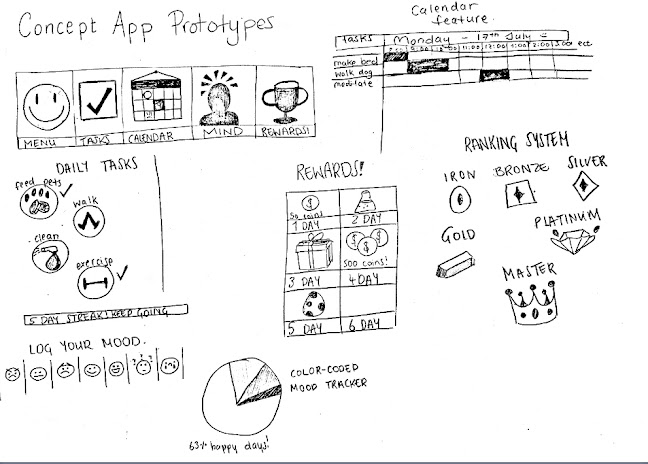 Concept App Prototypes
Calendar
feature.
Tasks Monday - 17th July
9:00 11:00 12:00 1:00 2:00 3:00 ect
make bed
walk dog
meditate
MENU TASKS CALENDAR MIND REWARDS!
DAILY TASKS
feed pets
walk
clean
exercise
5 DAY STREAK! KEEP GOING
LOG YOUR MOOD.
REWARDS!
50 coins!
1 DAY 2 DAY
500 coins!
3 DAY 4 DAY
5 DAY 6 DAY
RANKING SYSTEM
IRON BRONZE SILVER
GOLD PLATINUM
MASTER
COLOR-CODED
MOOD TRACKER
63% happy days!